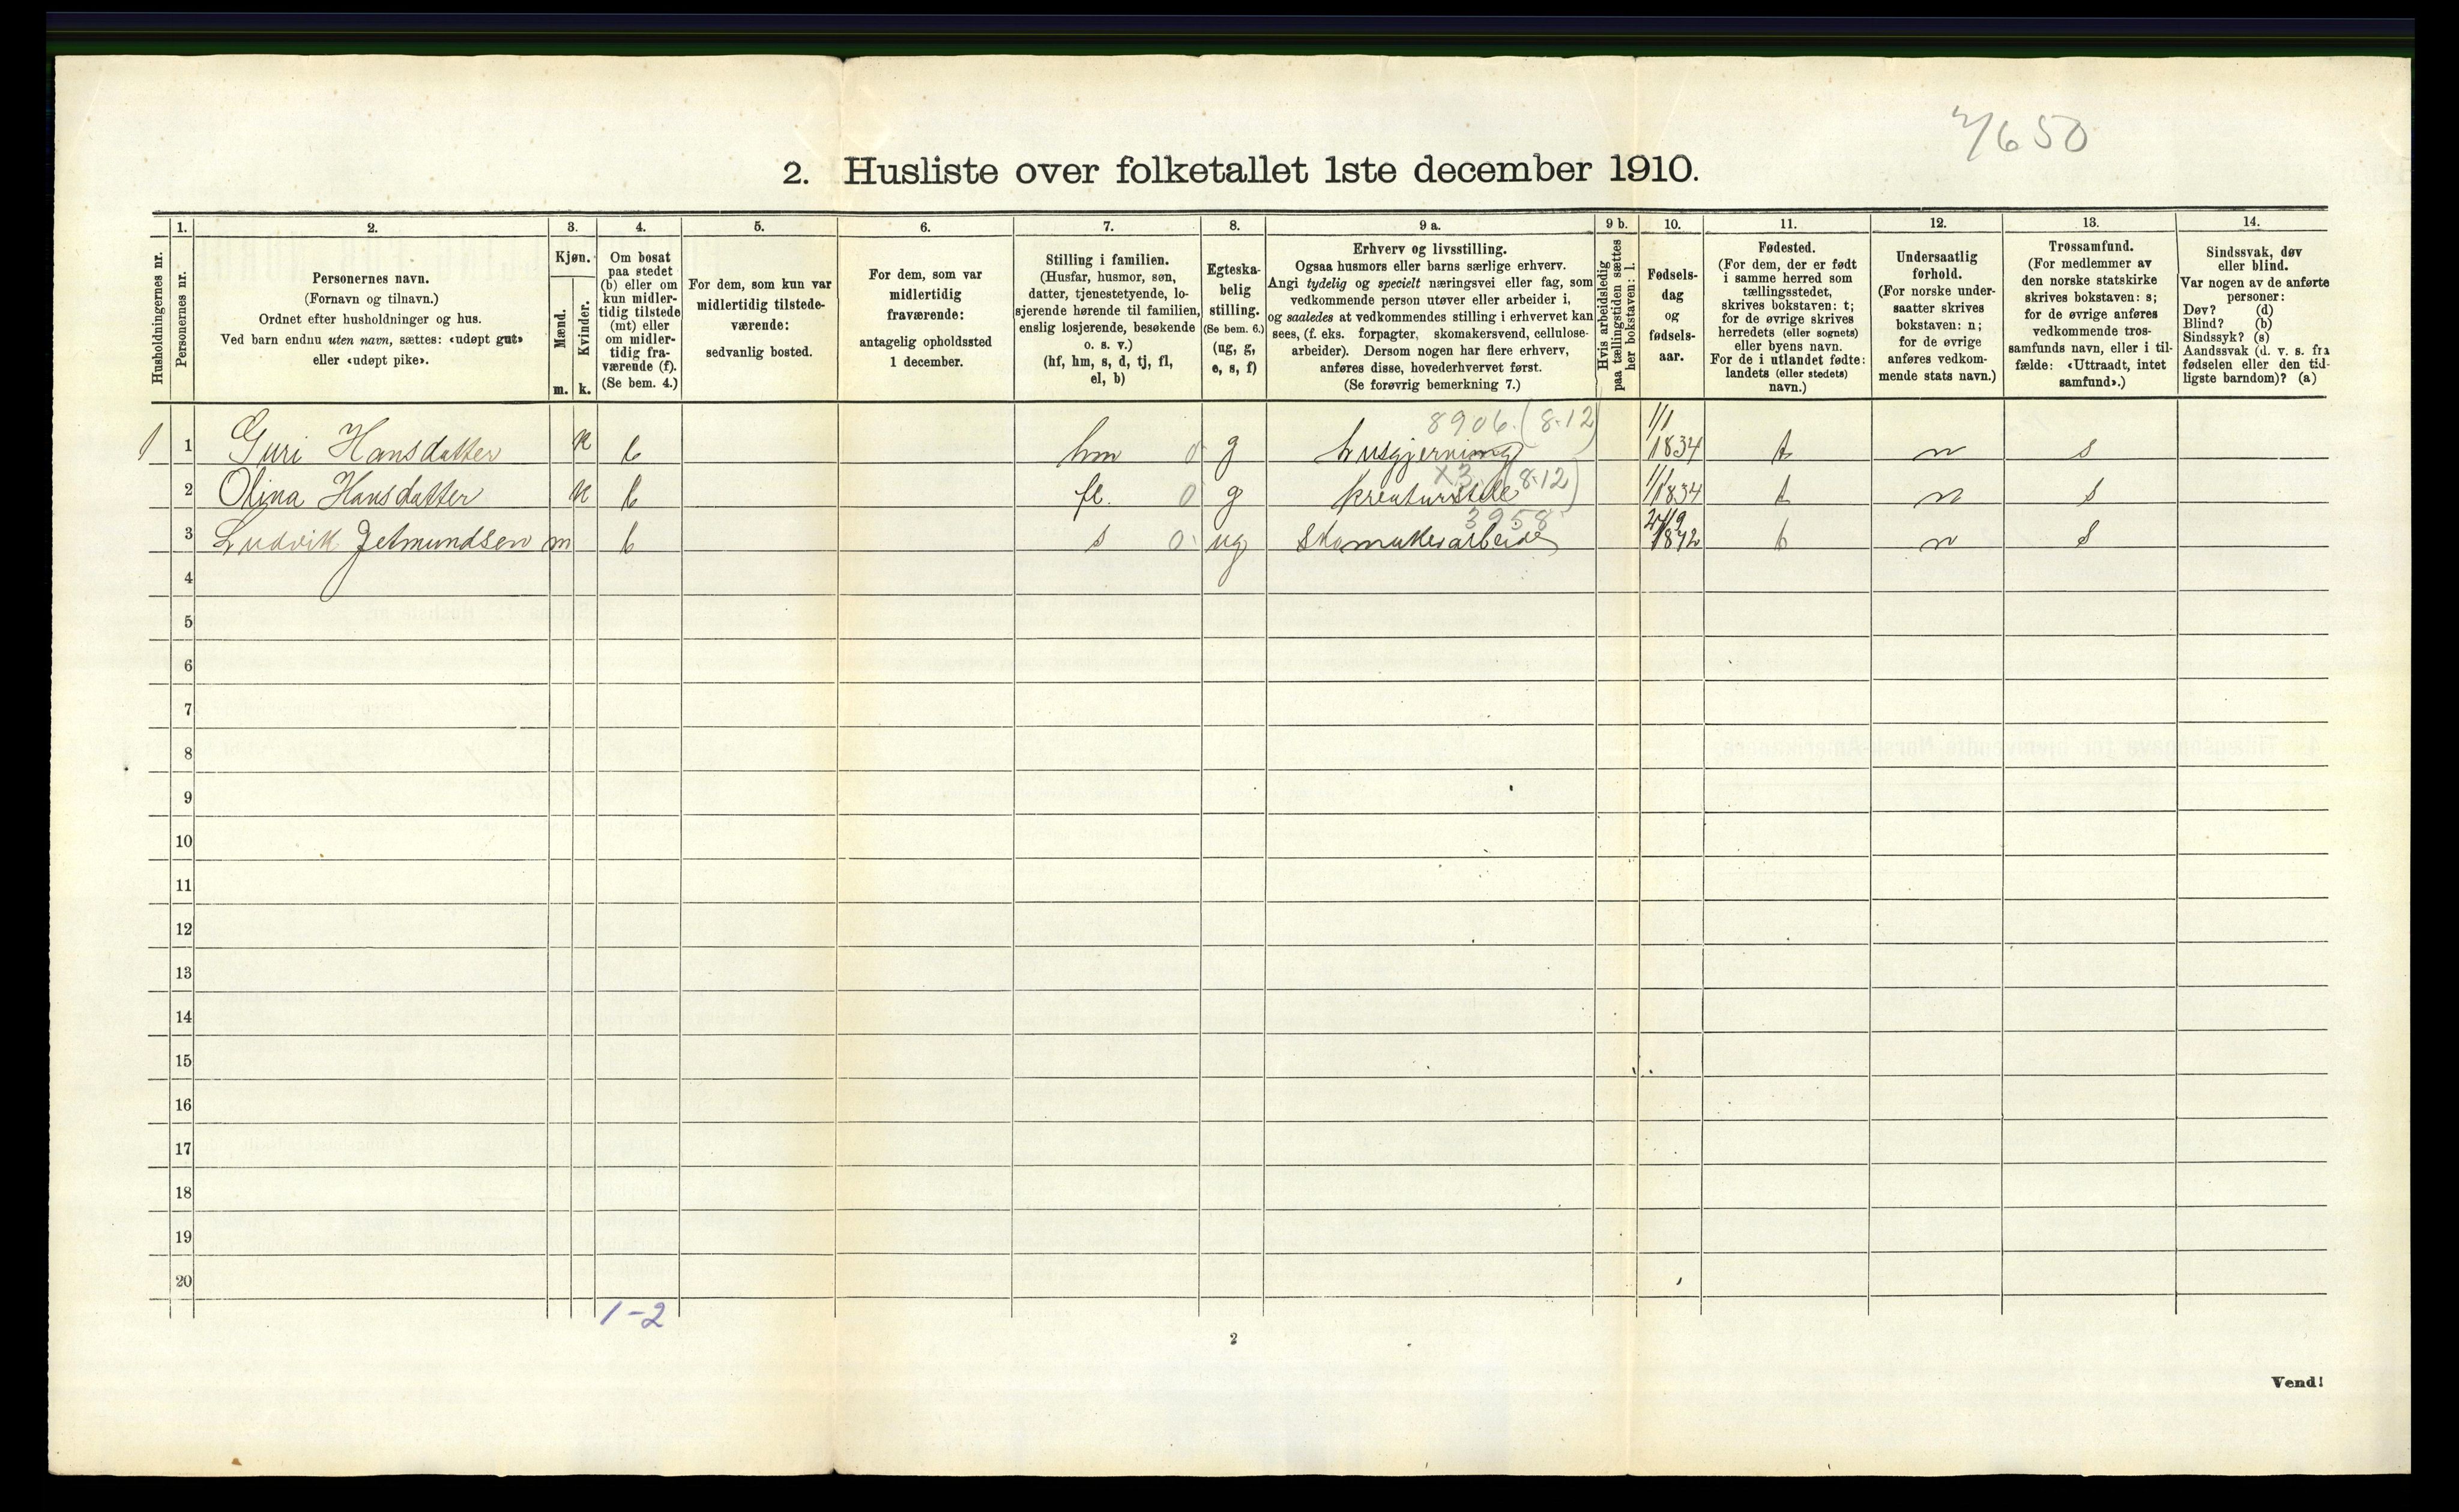 4/650
2. Husliste over folketallet 1ste december 1910.
1. 2. 3. 4. 5. 6. 7. 8. 9 a. 9 b. 10. 11. 12. 13. 14.
Husholdningernes nr.
Personernes nr.
Personernes navn.
(Fornavn og tilnavn.)
Ordnet efter husholdninger og hus.
Ved barn endnu uten navn, sættes: «udøpt gut»
eller «udøpt pike».
Kjøn.
Mænd.
Kvinder.
m. k.
Om bosat
paa stedet
(b) eller om
kun midler-
tidig tilstede
(mt) eller
om midler-
tidig fra-
værende (f).
(Se bem. 4.)
For dem, som kun var
midlertidig tilstede-
værende:
sedvanlig bosted.
For dem, som var
midlertidig
fraværende:
antagelig opholdssted
1 december.
Stilling i familien.
(Husfar, husmor, søn,
datter, tjenestetyende, lo-
sjerende hørende til familien,
enslig losjerende, besøkende
o. s. v.)
(hf, hm, s, d, tj, fl,
el, b)
Egteska-
belig
stilling.
(Se bem. 6.)
(ug, g,
e, s, f)
Erhverv og livsstilling.
Ogsaa husmors eller barns særlige erhverv.
Angi tydelig og specielt næringsvei eller fag, som
vedkommende person utøver eller arbeider i,
og saaledes at vedkommendes stilling i erhvervet kan
sees, (f. eks. forpagter, skomakersvend, cellulose-
arbeider). Dersom nogen har flere erhverv,
anføres disse, hovederhvervet først.
(Se forøvrig bemerkning 7.)
Hvis arbeidsledig
paa tællingstiden sættes
her bokstaven: l.
Fødsels-
dag
og
fødsels-
aar.
Fødested.
(For dem, der er født
i samme herred som
tællingsstedet,
skrives bokstaven: t;
for de øvrige skrives
herredets (eller sognets)
eller byens navn.
For de i utlandet fødte:
landets (eller stedets)
navn.)
Undersaatlig
forhold.
(For norske under-
saatter skrives
bokstaven: n;
for de øvrige
anføres vedkom-
mende stats navn.)
Trossamfund.
(For medlemmer av
den norske statskirke
skrives bokstaven: s;
for de øvrige anføres
vedkommende tros-
samfunds navn, eller i til-
fælde: «Uttraadt, intet
samfund».)
Sindssvak, døv
eller blind.
Var nogen av de anførte
personer:
Døv? (d)
Blind? (b)
Sindssyk? (s)
Aandssvak (d. v. s. fra
fødselen eller den tid-
ligste barndom)? (a)
8906. (8-12)
1 1 Guri Hansdatter k b hm 0 g husgjerning 1/1 1834 t n s
X3. (8-12)
2 Olina Hansdatter k b fl. 0 g kreaturstel 1/1 1834 t n s
3958
3 Ludvik Jetmundsen m b s 0 ug Skomakerarbeide 1872 t n s
4
5
6
7
8
9
10
11
12
13
14
15
16
17
18
19
20
1-2
2
Vend!